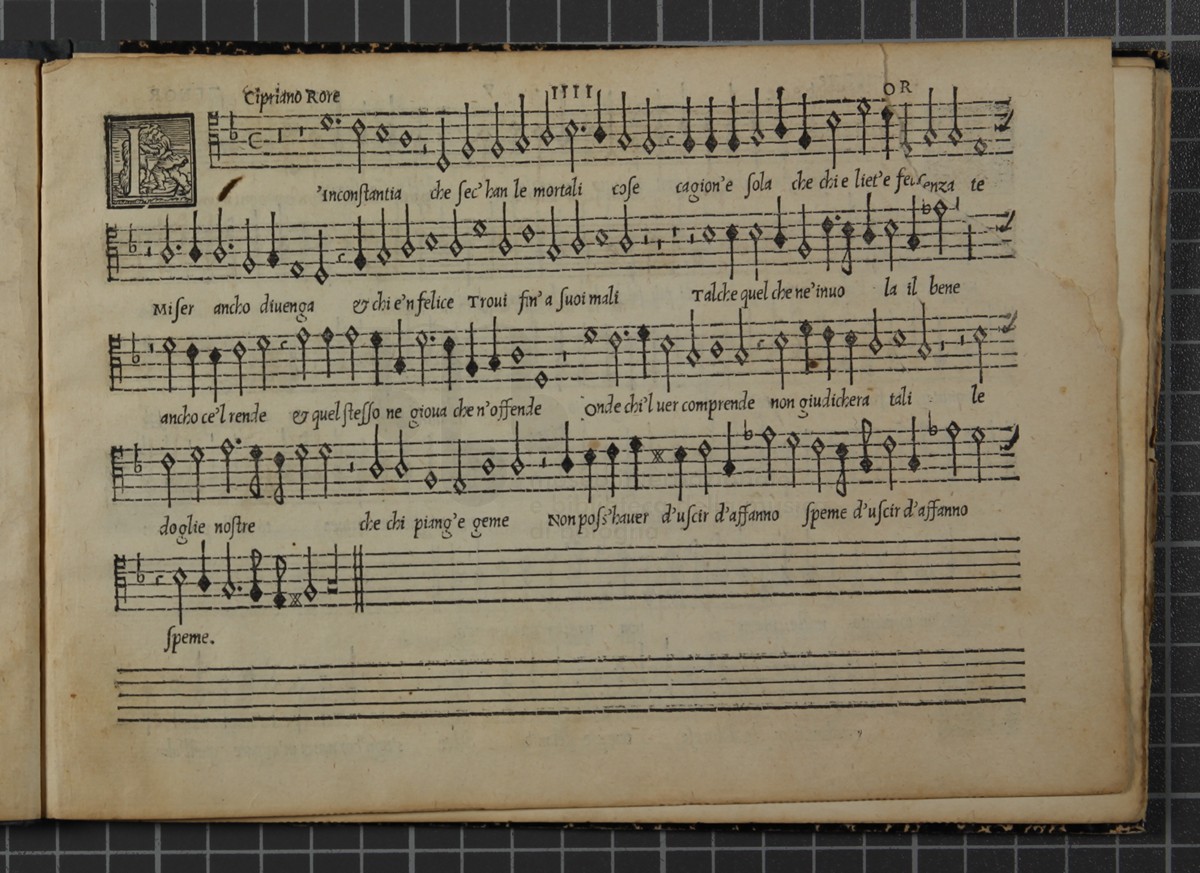 Cipriano Rore
OR
L
'Inconſtantia che ſec'han le mortali coſe cagion'e ſola che chi e liet'e te
Miſer ancho diuenga & chi e'n felice Troui fin'a ſuoi mali Talche quel che ne'inuo la il bene
ancho ce'l rende & quel ſteſſo ne gioua che n'offende Onde chi'l uer comprende non giudichera tali le
doglie noſtre che chi piang'e geme Non poſſ'hauer d'uſcir d'affanno ſpeme d'uſcir d'affanno
ſpeme.